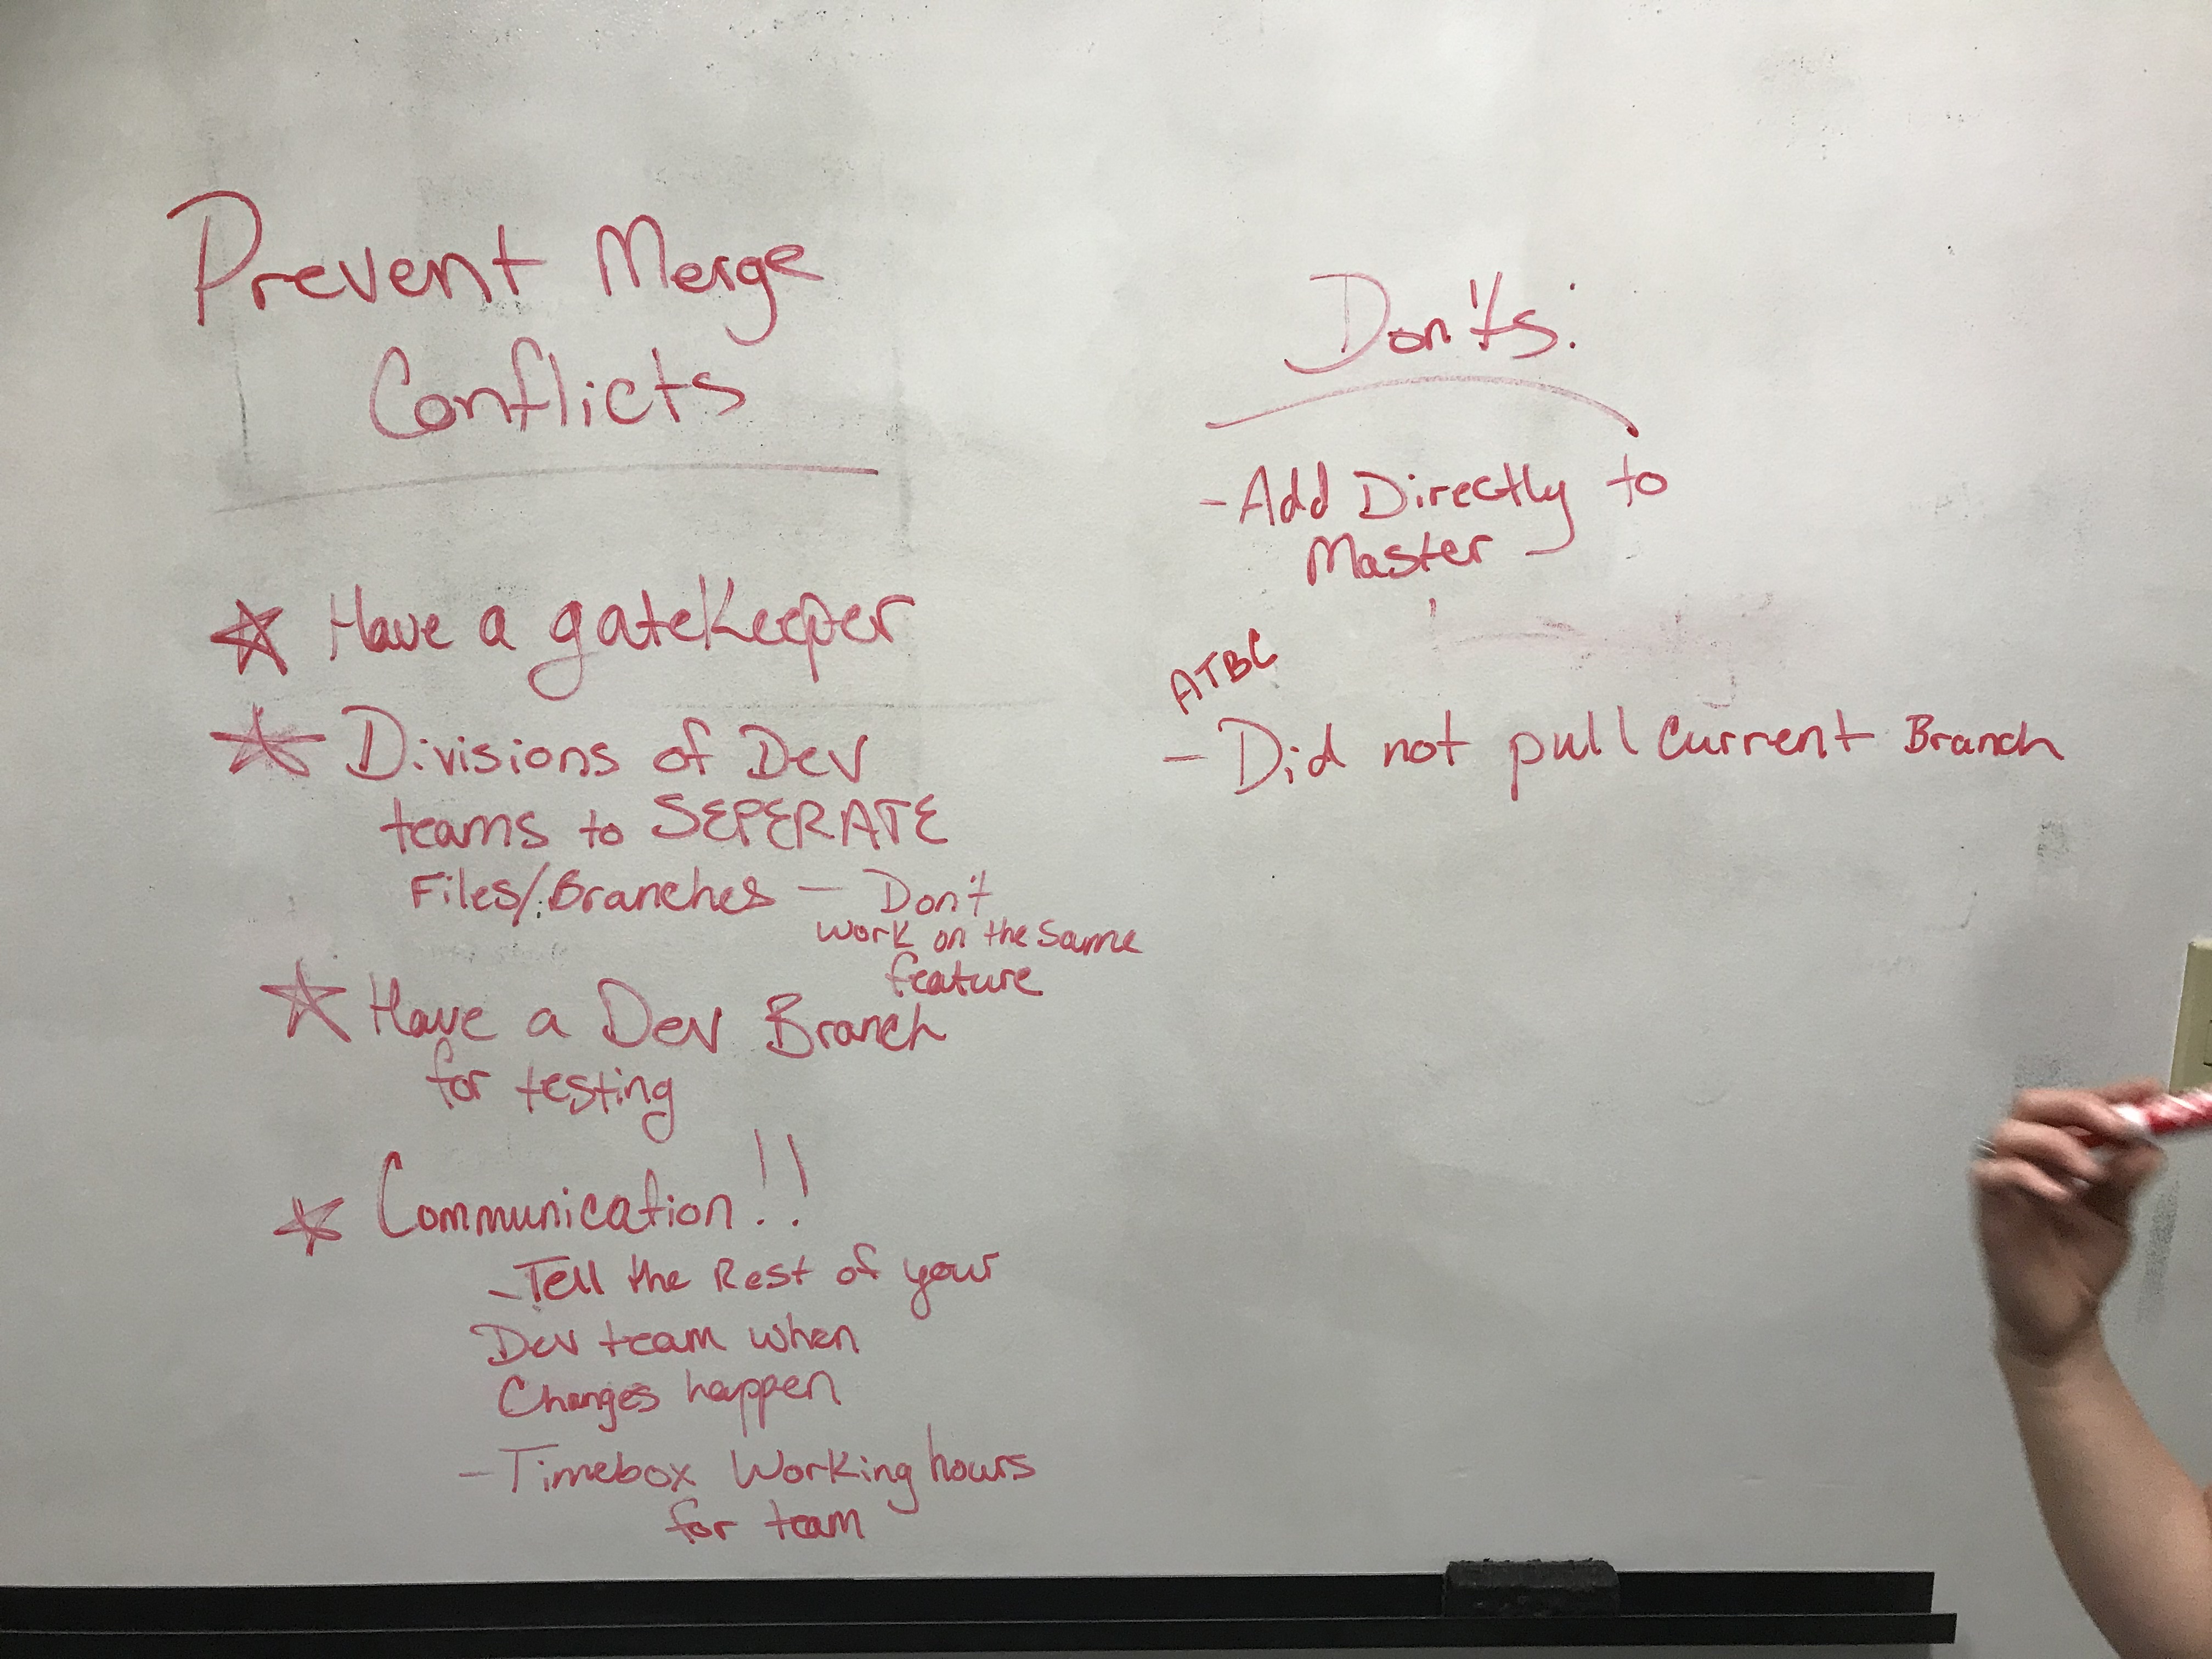 Prevent Merge
Conflicts
Have a gateKeeper
Divisions of Dev
teams to SEPERATE
Files/Branches – Don't
work on the same
feature
Have a Dev Branch
for testing
Communication!!
- Tell the Rest of your
Dev team when
Changes happen
- Timebox Working hours
for team
Don'ts:
- Add Directly to
Master
ATBC
- Did not pull current Branch